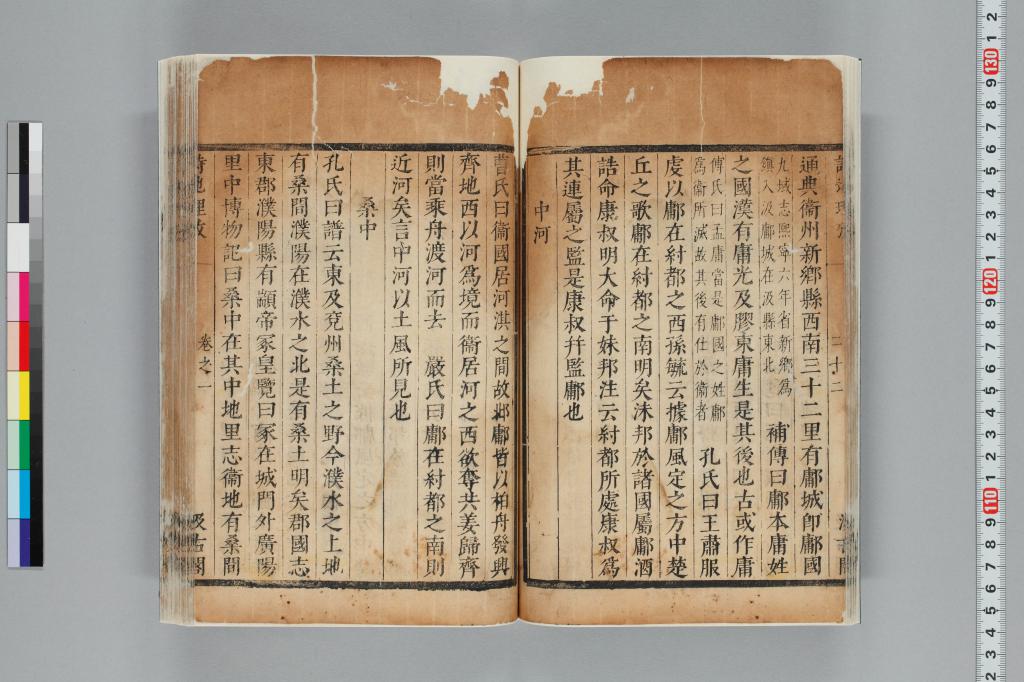 通典衞州新鄉縣西南三十二里有鄘城卽鄘國
九域志熙寧六年省新鄉爲
鎮入汲鄘城在汲縣東北
補傳曰鄘本庸姓
之國漢有庸光及膠東庸生是其後也古或作庸
傅氏曰孟庸當是鄘國之姓鄘
爲衞所滅故其後有仕於衞者
孔氏曰王肅服
虔以鄘在紂都之西孫毓云據鄘風定之方中楚
丘之歌鄘在紂都之南明矣沬邦於諸國屬鄘酒
誥命康叔明大命于妹邦注云紂都所處康叔爲
其連屬之監是康叔幷監鄘也
中河
曹氏曰衞國居河淇之間故邶鄘皆以柏舟發興
齊地西以河爲境而衞居河之西欲奪共姜歸齊
則當乘舟渡河而去 嚴氏曰鄘在紂都之南則
近河矣言中河以土風所見也
桑中
孔氏曰譜云東及兗州桑土之野今濮水之上地
有桑間濮陽在濮水之北是有桑土明矣郡國志
東郡濮陽縣有顓帝冢皇覽曰冢在城門外廣陽
里中博物記曰桑中在其中地里志衞地有桑間
卷之一